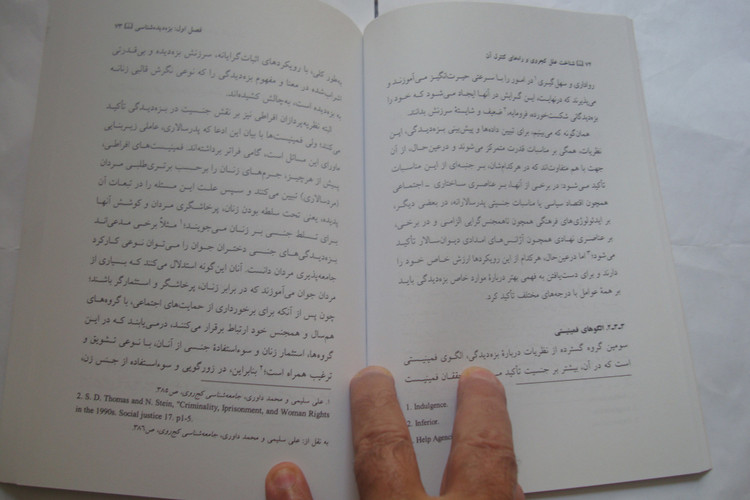 ۷۲ شناخت علل کجروی و راه‌های کنترل آن
رواداری و سهل‌گیری۱ در امور را با سرعتی حیرت‌انگیز می‌آموزند و
می‌پذیرند که درنهایت، این گرایش در آنها ایجاد می‌شود که خود را
بزه‌دیدگانی شکست‌خورده، فرومایه،۲ ضعیف و شایستهٔ سرزنش بدانند.
همان‌گونه که می‌بینیم، برای تبیین داده‌ها و پیش‌بینی بزه‌دیدگی، این
نظریات، همگی بر مناسبات قدرت متمرکز می‌شوند و درعین‌حال، از آن
جهت با هم متفاوت‌اند که در هرکدامشان، بر جنبه‌ای از این مناسبات
تأکید می‌شود: در برخی از آنها، بر عناصری ساختاری ـ اجتماعی
همچون اقتصاد سیاسی یا مناسبات جنسیتی پدرسالارانه، در بعضی دیگر،
بر ایدئولوژی‌های فرهنگی همچون ناهمجنس‌گرایی الزامی و در برخی،
بر عناصری نهادی همچون آژانس‌های امدادی دیوان‌سالار تأکید
می‌شود؛۳ اما درعین‌حال، هرکدام از این رویکردها ارزش خاص خود را
دارند و برای دست‌یافتن به فهمی بهتر دربارهٔ موارد خاص بزه‌دیدگی باید
بر همهٔ عوامل با درجه‌های مختلف تأکید کرد.
۲ـ۳ـ۳. الگوهای فمینیستی
سومین گروه گسترده از نظریات دربارهٔ بزه‌دیدگی، الگوی فمینیستی
است که در آن، بیشتر بر جنسیت تأکید فمینیست
1. Indulgence.
2. Inferior.
Help Agenc
فصل اول: بزه‌دیده‌شناسی ۷۳
به‌طور کلی» با رویکردهای اثبات‌گرایانه، سرزنش بزه‌دیده و بی‌قدرتی
اشراب‌شده در معنا و مفهوم بزه‌دیدگی را که نوعی نگرش قالبی زنانه
به بزه‌دیده است، به‌چالش کشیده‌اند.
البته نظریه‌پردازان افراطی نیز بر نقش جنسیت در بزه‌دیدگی تأکید
می‌کنند؛ ولی فمینیست‌ها با بیان این ادعا که پدرسالاری، عاملی زیربنایی
ماورای این مسائل است، گامی فراتر برداشته‌اند. فمینیست‌های افراطی،
پیش از هرچیز، جرم‌های زنان را برحسب برتری‌طلبی مردان
(مردسالاری) تبیین می‌کنند و سپس علت این مسئله را در تبعات آن
پدیده، یعنی تحت سلطه بودن زنان، پرخاشگری مردان و کوشش آنها
برای تسلط جنسی بر زنان می‌جویند؛۱ مثلاً برخی مدعی‌اند
بزه‌دیدگی‌های جنسی دختران جوان را می‌توان نوعی کارکرد
جامعه‌پذیری مردان دانست. آنان این‌گونه استدلال می‌کنند که بسیاری از
مردان جوان می‌آموزند که در برابر زنان، پرخاشگر و استثمارگر باشند؛
چون پس از آنکه برای برخورداری از حمایت‌های اجتماعی، با گروه‌های
هم‌سال و همجنس خود ارتباط برقرار می‌کنند، درمی‌یابند که در این
گروه‌ها، استثمار زنان و سوءاستفادهٔ جنسی از آنان، با نوعی تشویق و
ترغیب همراه است؛۲ بنابراین، در زورگویی و سوءاستفاده از جنس زن،
۱. علی سلیمی و محمد داوری، جامعه‌شناسی کج‌روی، ص۳۸۵.
2. S. D. Thomas and N. Stein, "Criminality, Iprisonment, and Woman Rights
in the 1990s. Social justice 17. p1-5.
به نقل از: علی سلیمی و محمد داوری، جامعه‌شناسی کج‌روی، ص۳۸۶.